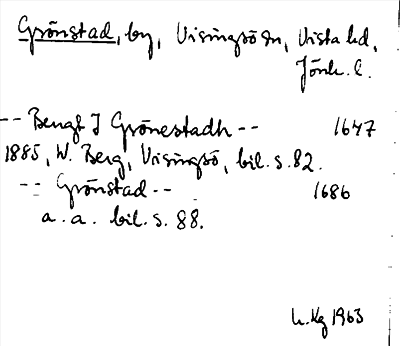 Grönstad, by, Visingsö sn, Vista hd,
Jönk. l.
-- Bengt I Grönestadh -- 1647
1885, W. Berg, Visingsö, bil. s. 82.
-- Grönstad -- 1686
a. a. bil. s. 88.
L. Kg 1963